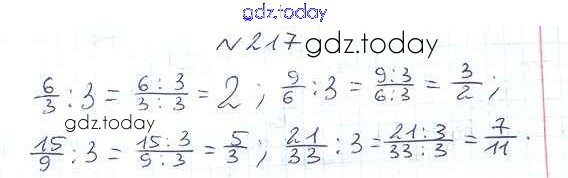 gdz.today
№217 gdz.today
6/3 : 3 = 6 : 3/3 : 3 = 2 ; 9/6 : 3 = 9:3/6:3 = 3/2 ;
gdz.today
15/9 : 3 = 15 : 3/9 : 3 = 5/3 ; 21/33 : 3 = 21 : 3/33 : 3 = 7/11 .